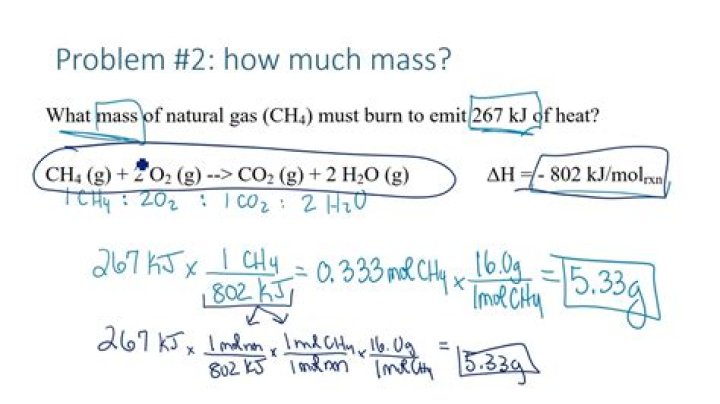 Problem #2: how much mass?
What mass of natural gas (CH₄) must burn to emit 267 kJ of heat?
CH₄ (g) + 2 O₂ (g) --> CO₂ (g) + 2 H₂O (g) ΔH = - 802 kJ/molrxn
1 CH₄ : 2O₂ : 1 CO₂ : 2 H₂O
267 KJ x 1 CH₄ / 802 KJ = 0.333 mol CH₄ x 16.0g / 1mol CH₄ = 5.33g
267 KJ x 1 mol rxn / 802 KJ x 1 mol CH₄ / 1 mol rxn x 16.0g / 1 mol CH₄ = 5.33g